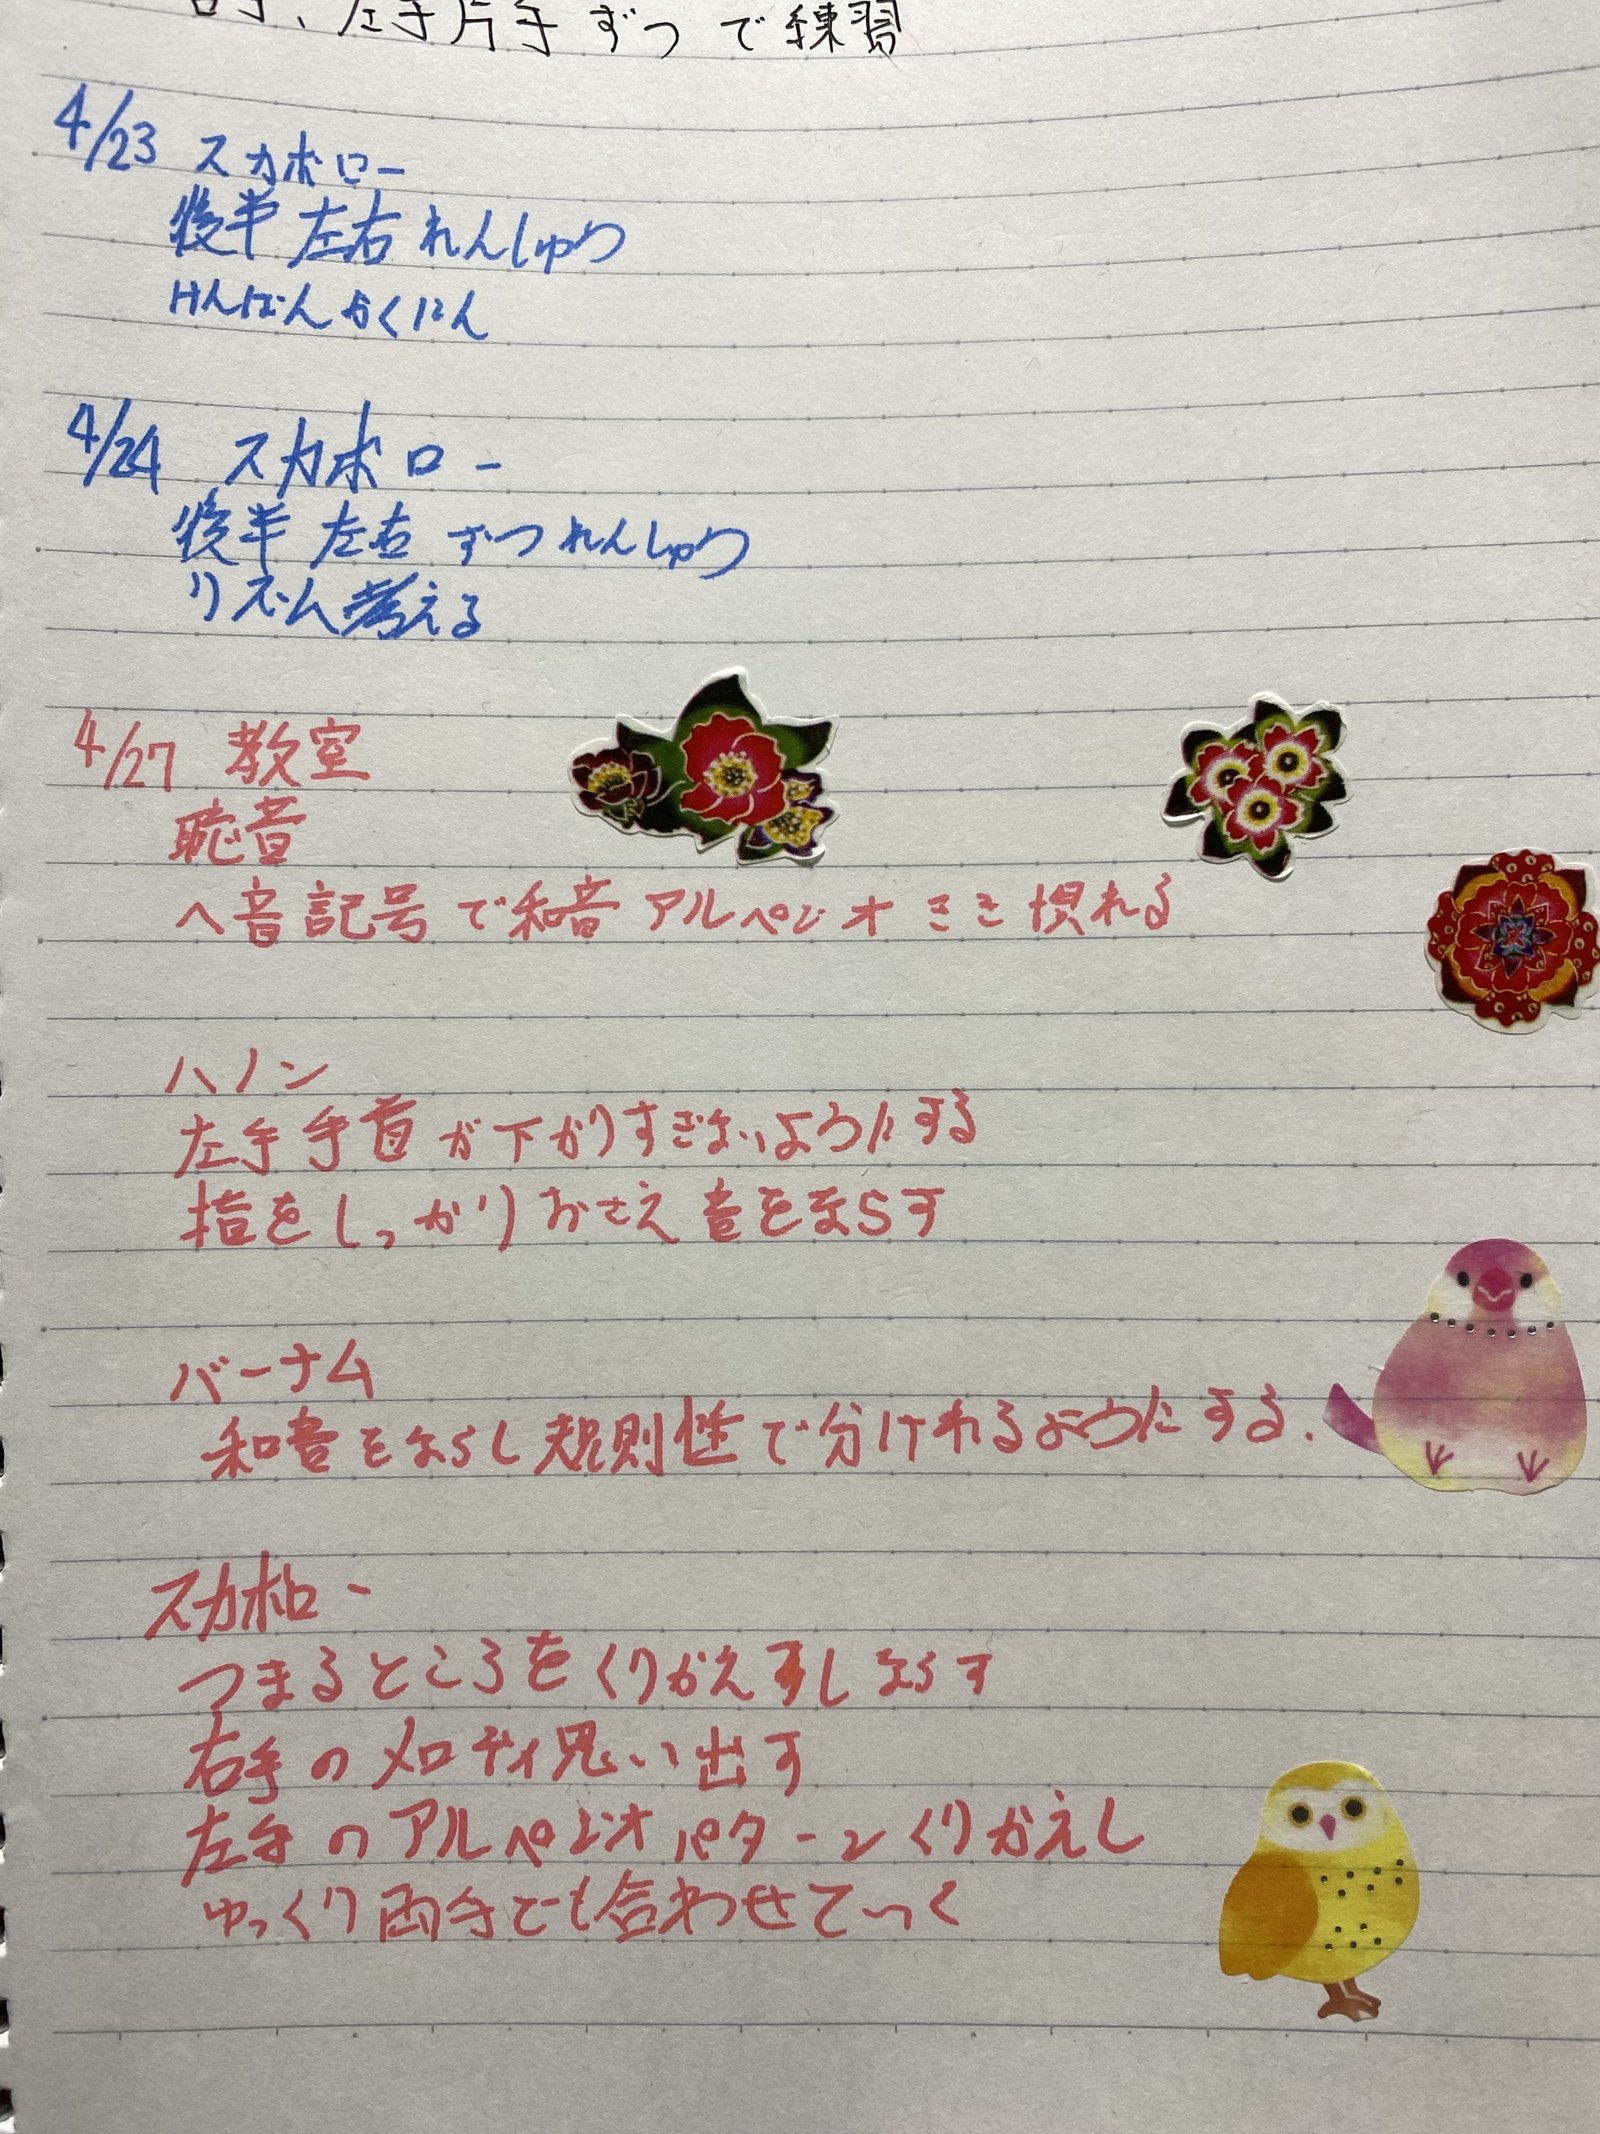 右手、左手片手ずつで練習
4/23 スカボロー
後半左右れんしゅう
けんばんかくにん
4/24 スカボロー
後半左右ずつれんしゅう
リズム考える
4/27 教室
聴音
ヘ音記号で和音アルペジオきき慣れる
ハノン
左手手首が下がりすぎないようにする
指をしっかりおさえ音をならす
バーナム
和音をならし規則性で分けれるようにする.
スカボロー
つまるところをくりかえすしならす
右手のメロディ思い出す
左手のアルペジオパターンくりかえし
ゆっくり両手でも合わせてつく